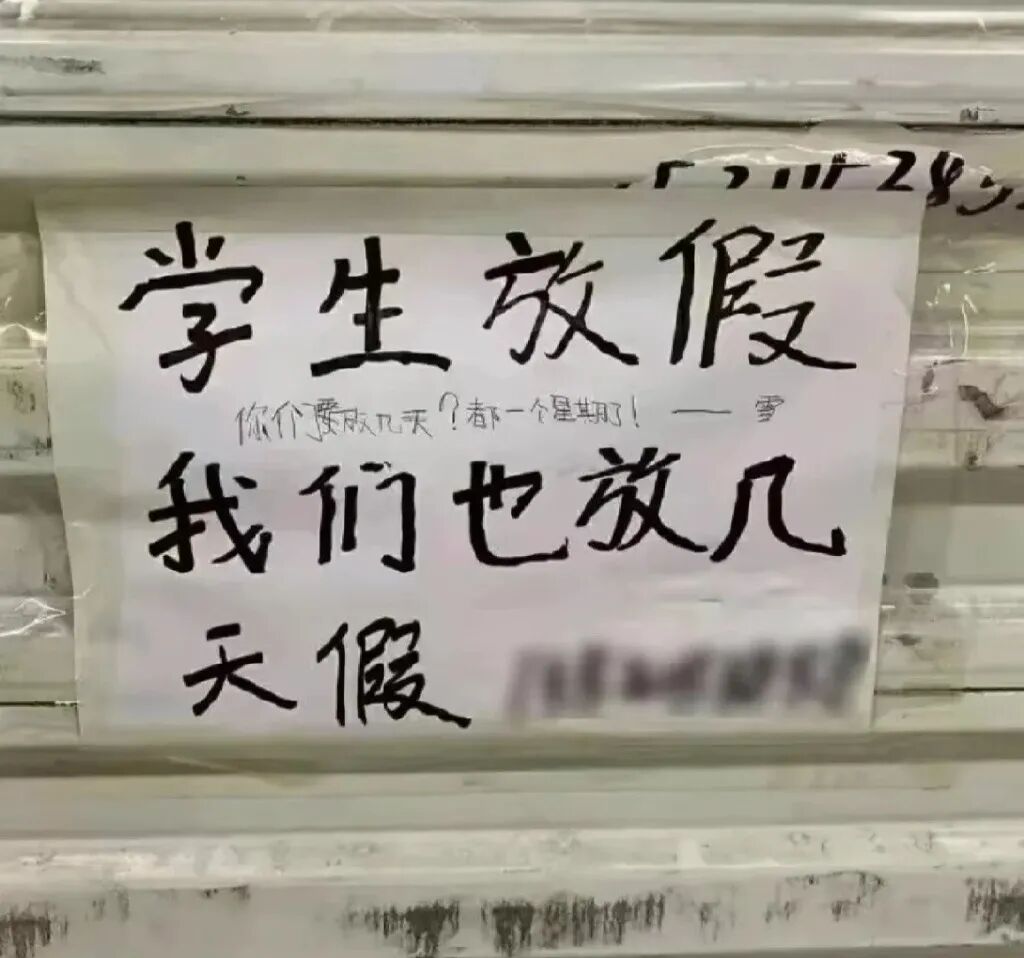 学生放假
你们要放几天?都一个星期了! —— 雪
我们也放几
天假